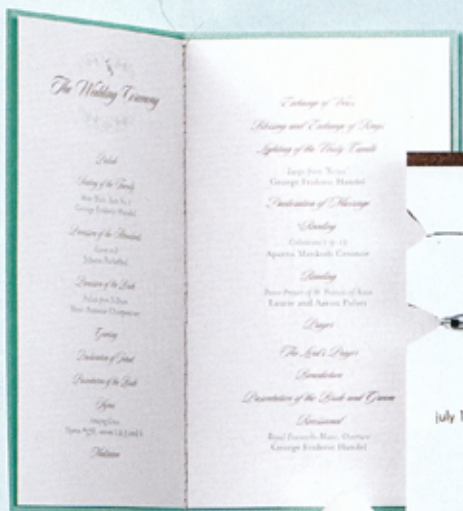 The Wedding Ceremony
Prelude
Seating of the Family
George Frideric Handel
Procession of the Attendants
Canon in D
Johann Pachelbel
Procession of the Bride
Marc-Antoine Charpentier
Greeting
Declaration of Intent
Presentation of the Bride
Hymn
Exchange of Vows
Blessing and Exchange of Rings
Lighting of the Unity Candle
Largo from "Xerxes"
George Frideric Handel
Declaration of Marriage
Reading
Colossians
Reading
Peace Prayer of St. Francis of Assisi
Laurie and Aaron
Prayer
The Lord's Prayer
Benediction
Presentation of the Bride and Groom
Recessional
Royal Fireworks Music: Overture
George Frideric Handel
july 1